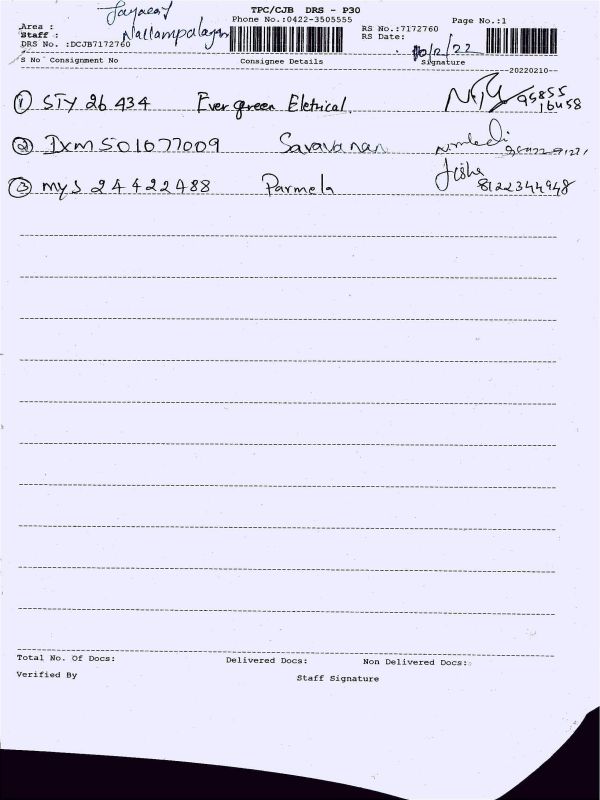 TPC/CJB DRS - P30
Phone No.:0422-3505555
Page No.:1
Area :
Staff : Nallampalayam
DRS No. :DCJB7172760
RS No.:7172760
RS Date: 10/2/22
S No Consignment No Consignee Details Signature
20220210
① STY 26 434 Ever green Eletrical 95855
16458
② IXM 501077009 Saravanan
③ mys 24422488 Parmela 8122344948
Total No. Of Docs: Delivered Docs: Non Delivered Docs:
Verified By Staff Signature